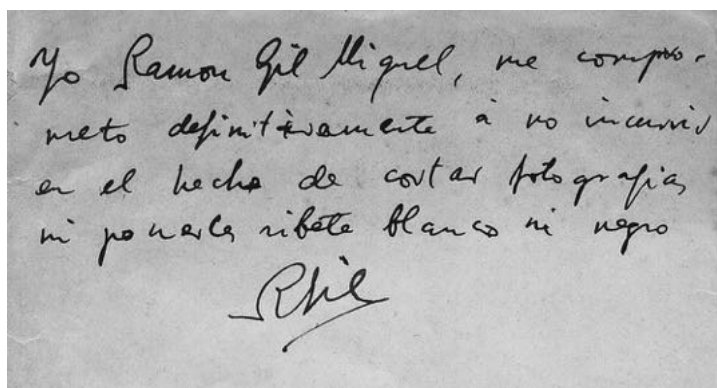 Yo Ramon Gil Miguel, me compro-
meto definitivamente à no incurrir
en el hecho de cortar fotografias
ni ponerles ribete blanco ni negro
RGil